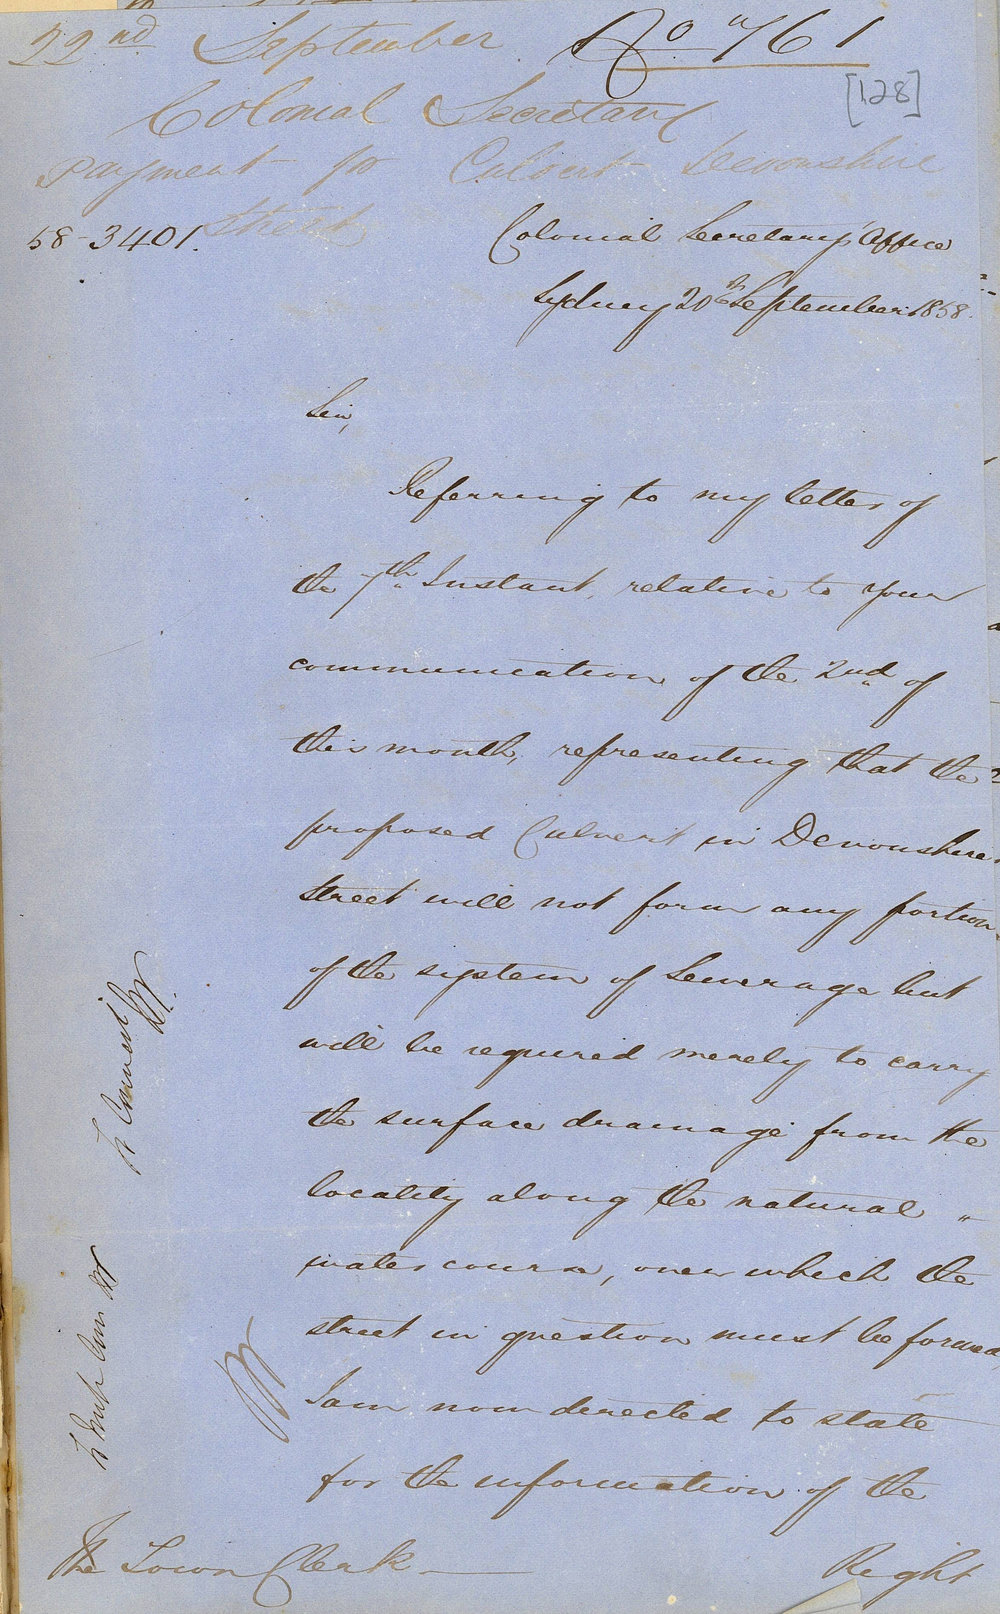 22nd September No. 761
[128]
Colonial Secretary
Payment for Culvert Devonshire
Street
58-3401.
Colonial Secretary's Office
Sydney 20th September 1858.
Sir,
Referring to my letter of
the 7th Instant, relative to your
communication of the 2nd of
this month, representing that the
proposed Culvert in Devonshire
Street will not form any portion
of the system of Sewerage but
will be required merely to carry
the surface drainage from the
locality along the natural "
water course, over which the
street in question must be formed,
I am now directed to state
for the information of the
The Town Clerk
Right
To Council